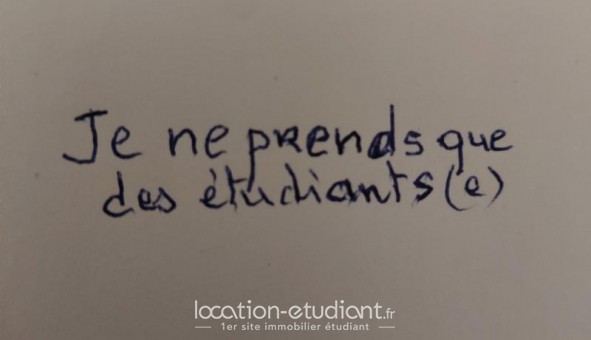 Je ne prends que
des étudiants(e)
location-etudiant.fr
1er site immobilier étudiant